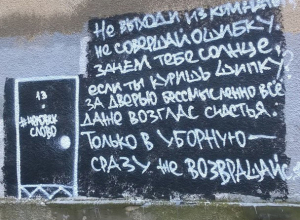 Не выходи из комнаты
не совершай ошибку.
зачем тебе солнце,
если ты куришь шипку?
за дверью бессмысленно всё
даже возглас счастья.
Только в уборную —
сразу же возвращайс
13
#человек
слово